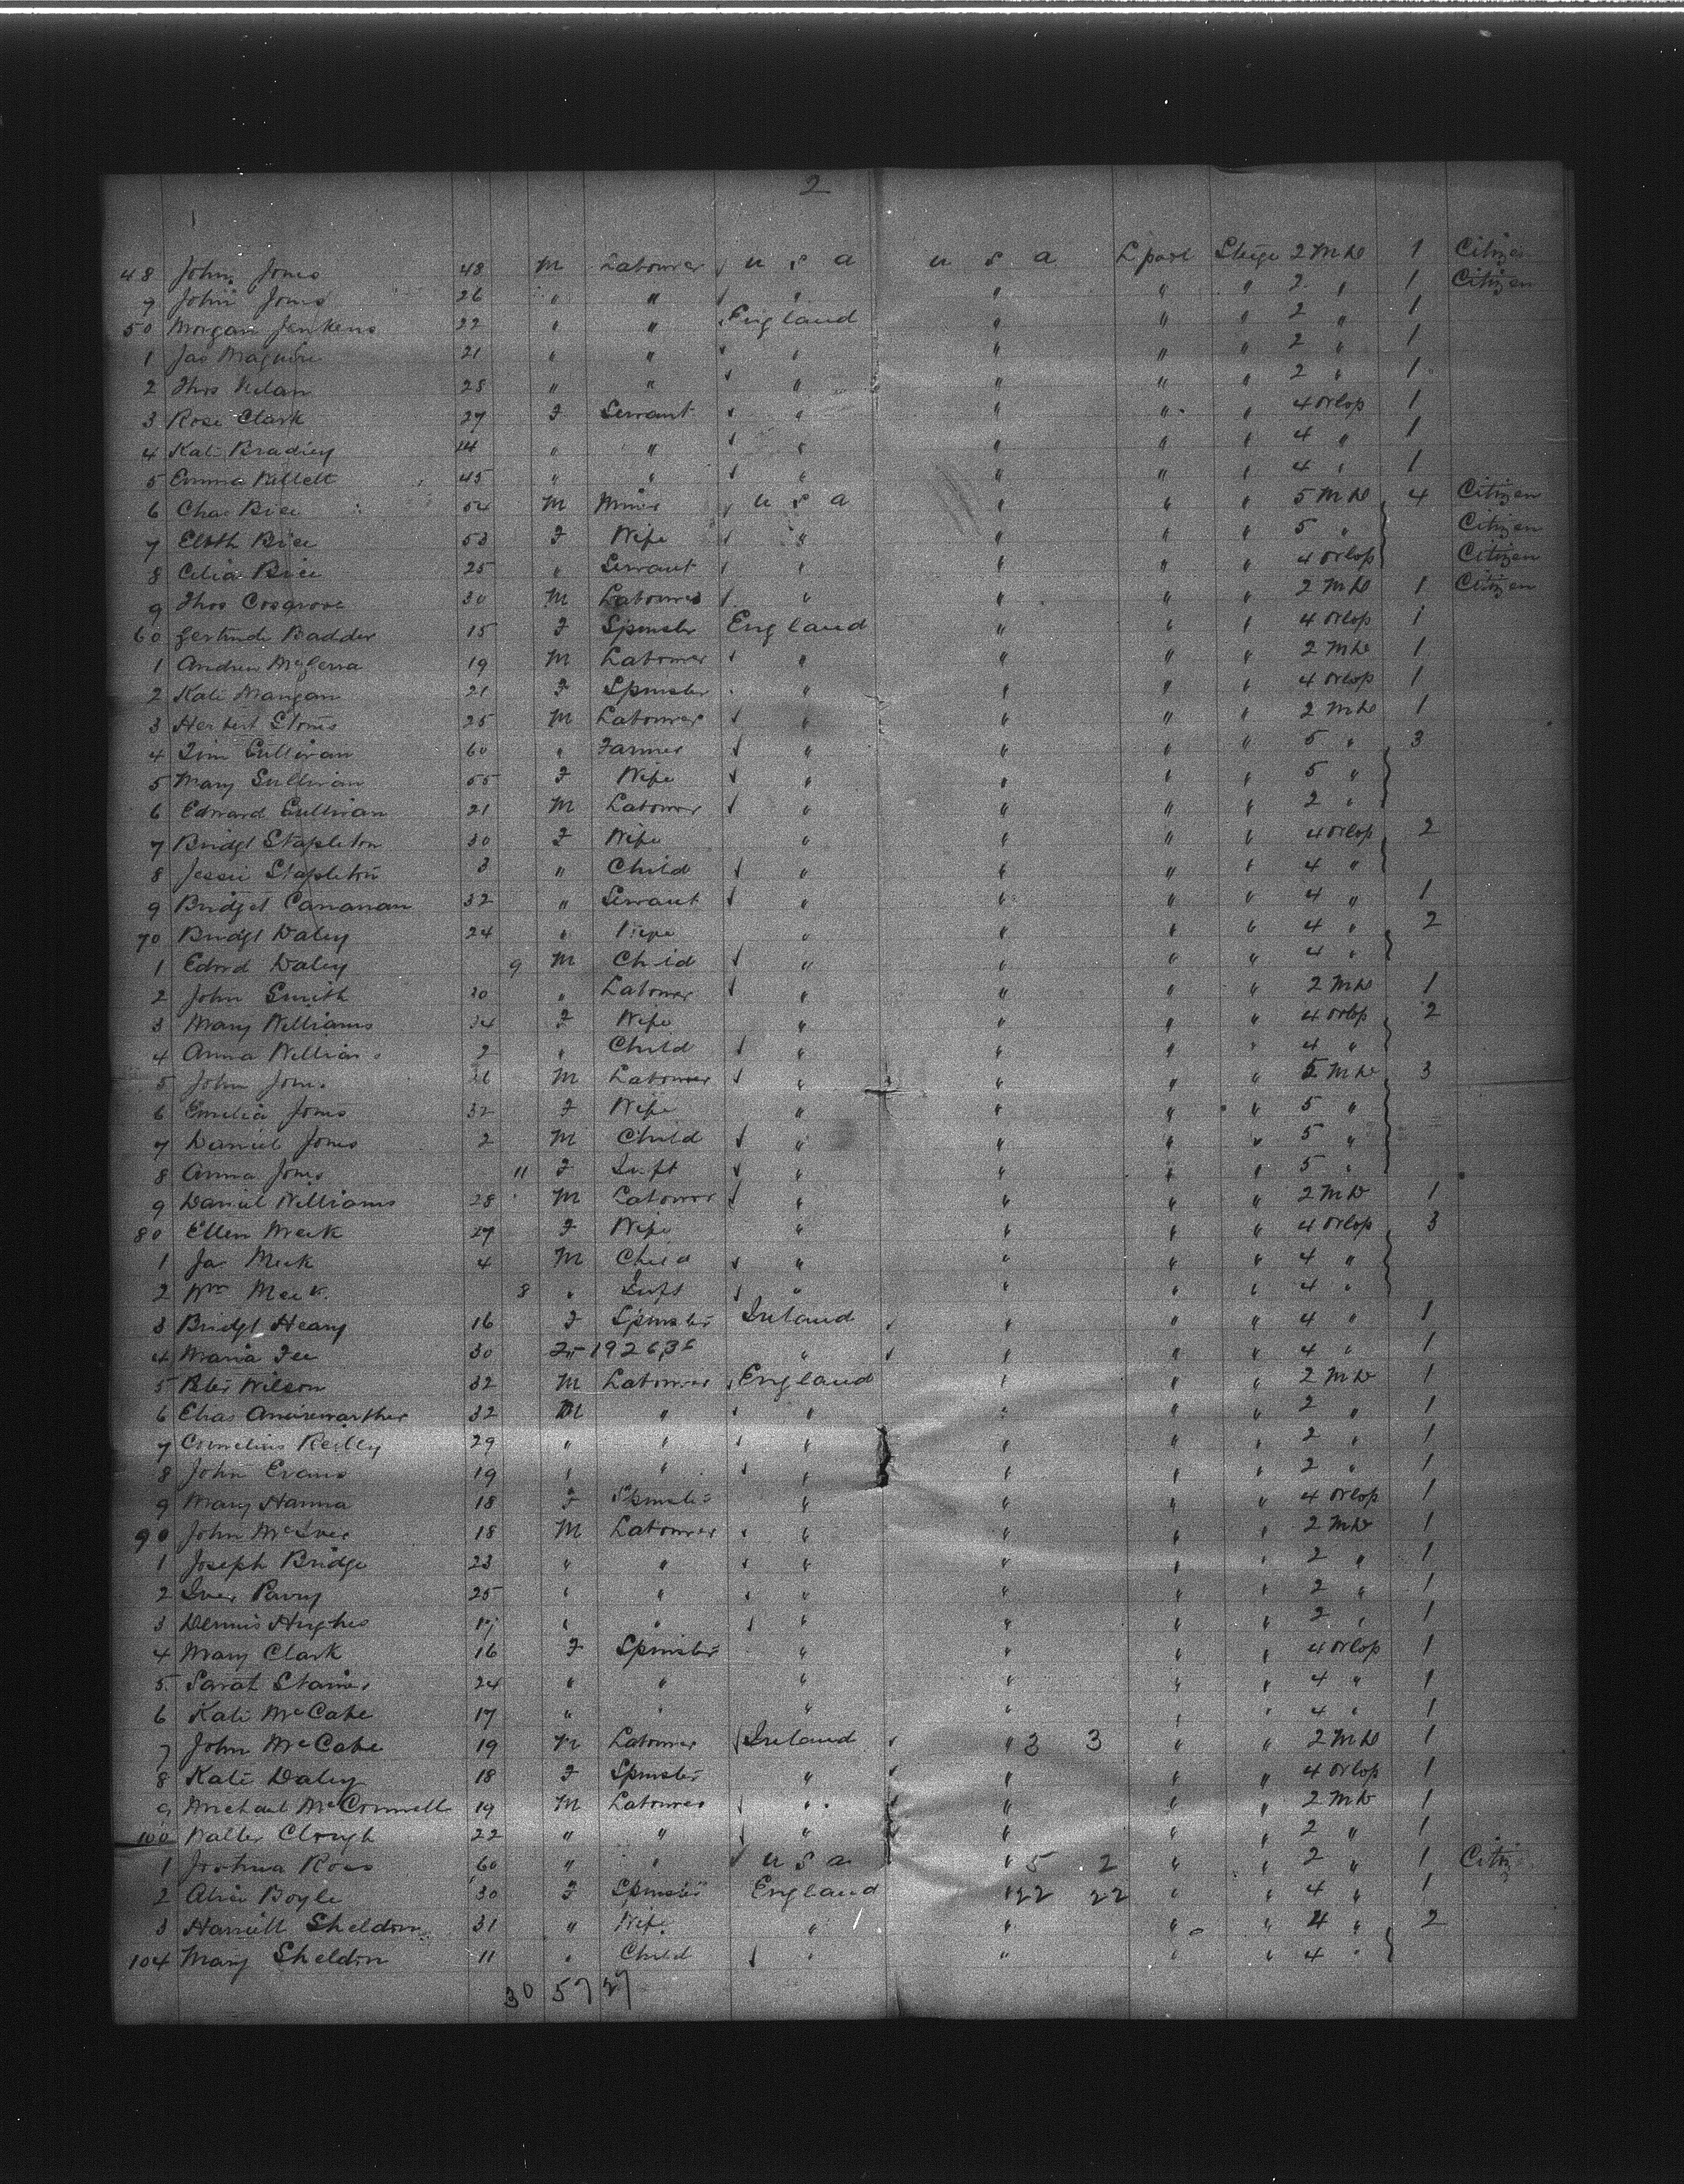 2
48 John Jones 48 M Labourer u s a u s a Lpool Stege 2 M Dk 1 Citizen
9 John Jones 26 " " " " " " 2 " 1 Citizen
50 Morgan Jenkens 22 " " England " " " 2 " 1
1 Jas Maguire 21 " " " " " " 2 " 1
2 Thos 28 " " " " " " 2 " 1
3 Rose Clark 27 F Servant " " " " 4 Orlop 1
4 Kate Bradley 14 " " " " " " 4 " 1
5 Emma 45 " " " " " " 4 " 1
6 Chas Bice 54 M Miner u s a " " " 5 M Dk 4 Citizen
7 Elbth Bice 53 F Wife " " " " 5 " Citizen
8 Celia Bice 25 " Servant " " " " 4 Orlop Citizen
9 Thos Cosgrove 30 M Labourer " " " " 2 M Dk 1 Citizen
60 Gertrude Badder 15 F Spinster England " " " 4 Orlop 1
1 Andrew 19 M Labourer " " " " 2 M Dk 1
2 Kate Mangan 21 F Spinster " " " " 4 Orlop 1
3 Herbert 25 M Labourer " " " " 2 M Dk 1
4 Tim Sullivan 60 " Farmer " " " " 5 " 3
5 Mary Sullivan 55 F Wife " " " " 5 "
6 Edward Sullivan 21 M Labourer " " " " 2 "
7 Bridgt Stapleton 30 F Wife " " " " 4 Orlop 2
8 Jessie Stapleton 3 " Child " " " " 4 "
9 Bridget Cananan 32 " Servant " " " " 4 " 1
70 Bridgt Daley 24 " Wife " " " " 4 " 2
1 Edwd Daley 9 M Child " " " " 4 "
2 John Smith 30 " Labourer " " " " 2 M Dk 1
3 Mary Williams 34 F Wife " " " " 4 Orlop 2
4 Anna Williams 2 " Child " " " " 4 "
5 John Jones M Labourer " " " " 5 M Dk 3
6 Emelia Jones 32 F Wife " " " " 5 "
7 Daniel Jones 2 M Child " " " " 5 "
8 Anna Jones 11 F Inft " " " " 5 "
9 Daniel Williams 28 M Labourer " " " " 2 M Dk 1
80 Ellen Meek 27 F Wife " " " " 4 Orlop 3
1 Jas Meek 4 M Child " " " " 4 "
2 Wm Meek 8 " Inft " " " " 4 "
3 Bridgt Heany 16 F Spinster Ireland " " " 4 " 1
4 Maria Fee 30 " " " " 4 " 1
5 Peter Wilson 32 M Labourer England " " " 2 M Dk 1
6 Elias 32 M " " " " " 2 " 1
7 Cornelius Reilly 29 " " " " " " 2 " 1
8 John Evans 19 " " " " " " 2 " 1
9 Mary Hanna 18 F Spinster " " " " 4 Orlop 1
90 John McIver 18 M Labourer " " " " 2 M Dk 1
1 Joseph Bridge 23 " " " " " " 2 " 1
2 Iver 25 " " " " " " 2 " 1
3 Dennis Hughes " " " " " " 2 " 1
4 Mary Clark 16 F Spinster " " " " 4 Orlop 1
5 Sarah 24 " " " " " " 4 " 1
6 Kate McCabe 17 " " " " " " 4 " 1
7 John McCabe 19 M Labourer Ireland " 3 3 " " 2 M Dk 1
8 Kate Daley 18 F Spinster " " " " 4 Orlop 1
9 Michael McConnell 19 M Labourer " " " " 2 M Dk 1
100 Walter Clough 22 " " " " " " 2 " 1
1 Joshua Ross 60 " " u s a " 5 2 " " 2 " 1
2 Alice Boyle 30 F Spinster England " 22 22 " " 4 " 1
3 Harriett Sheldon 31 " Wife " " " " 4 " 2
104 Mary Sheldon 11 " Child " " " " 4 "
30 57 27